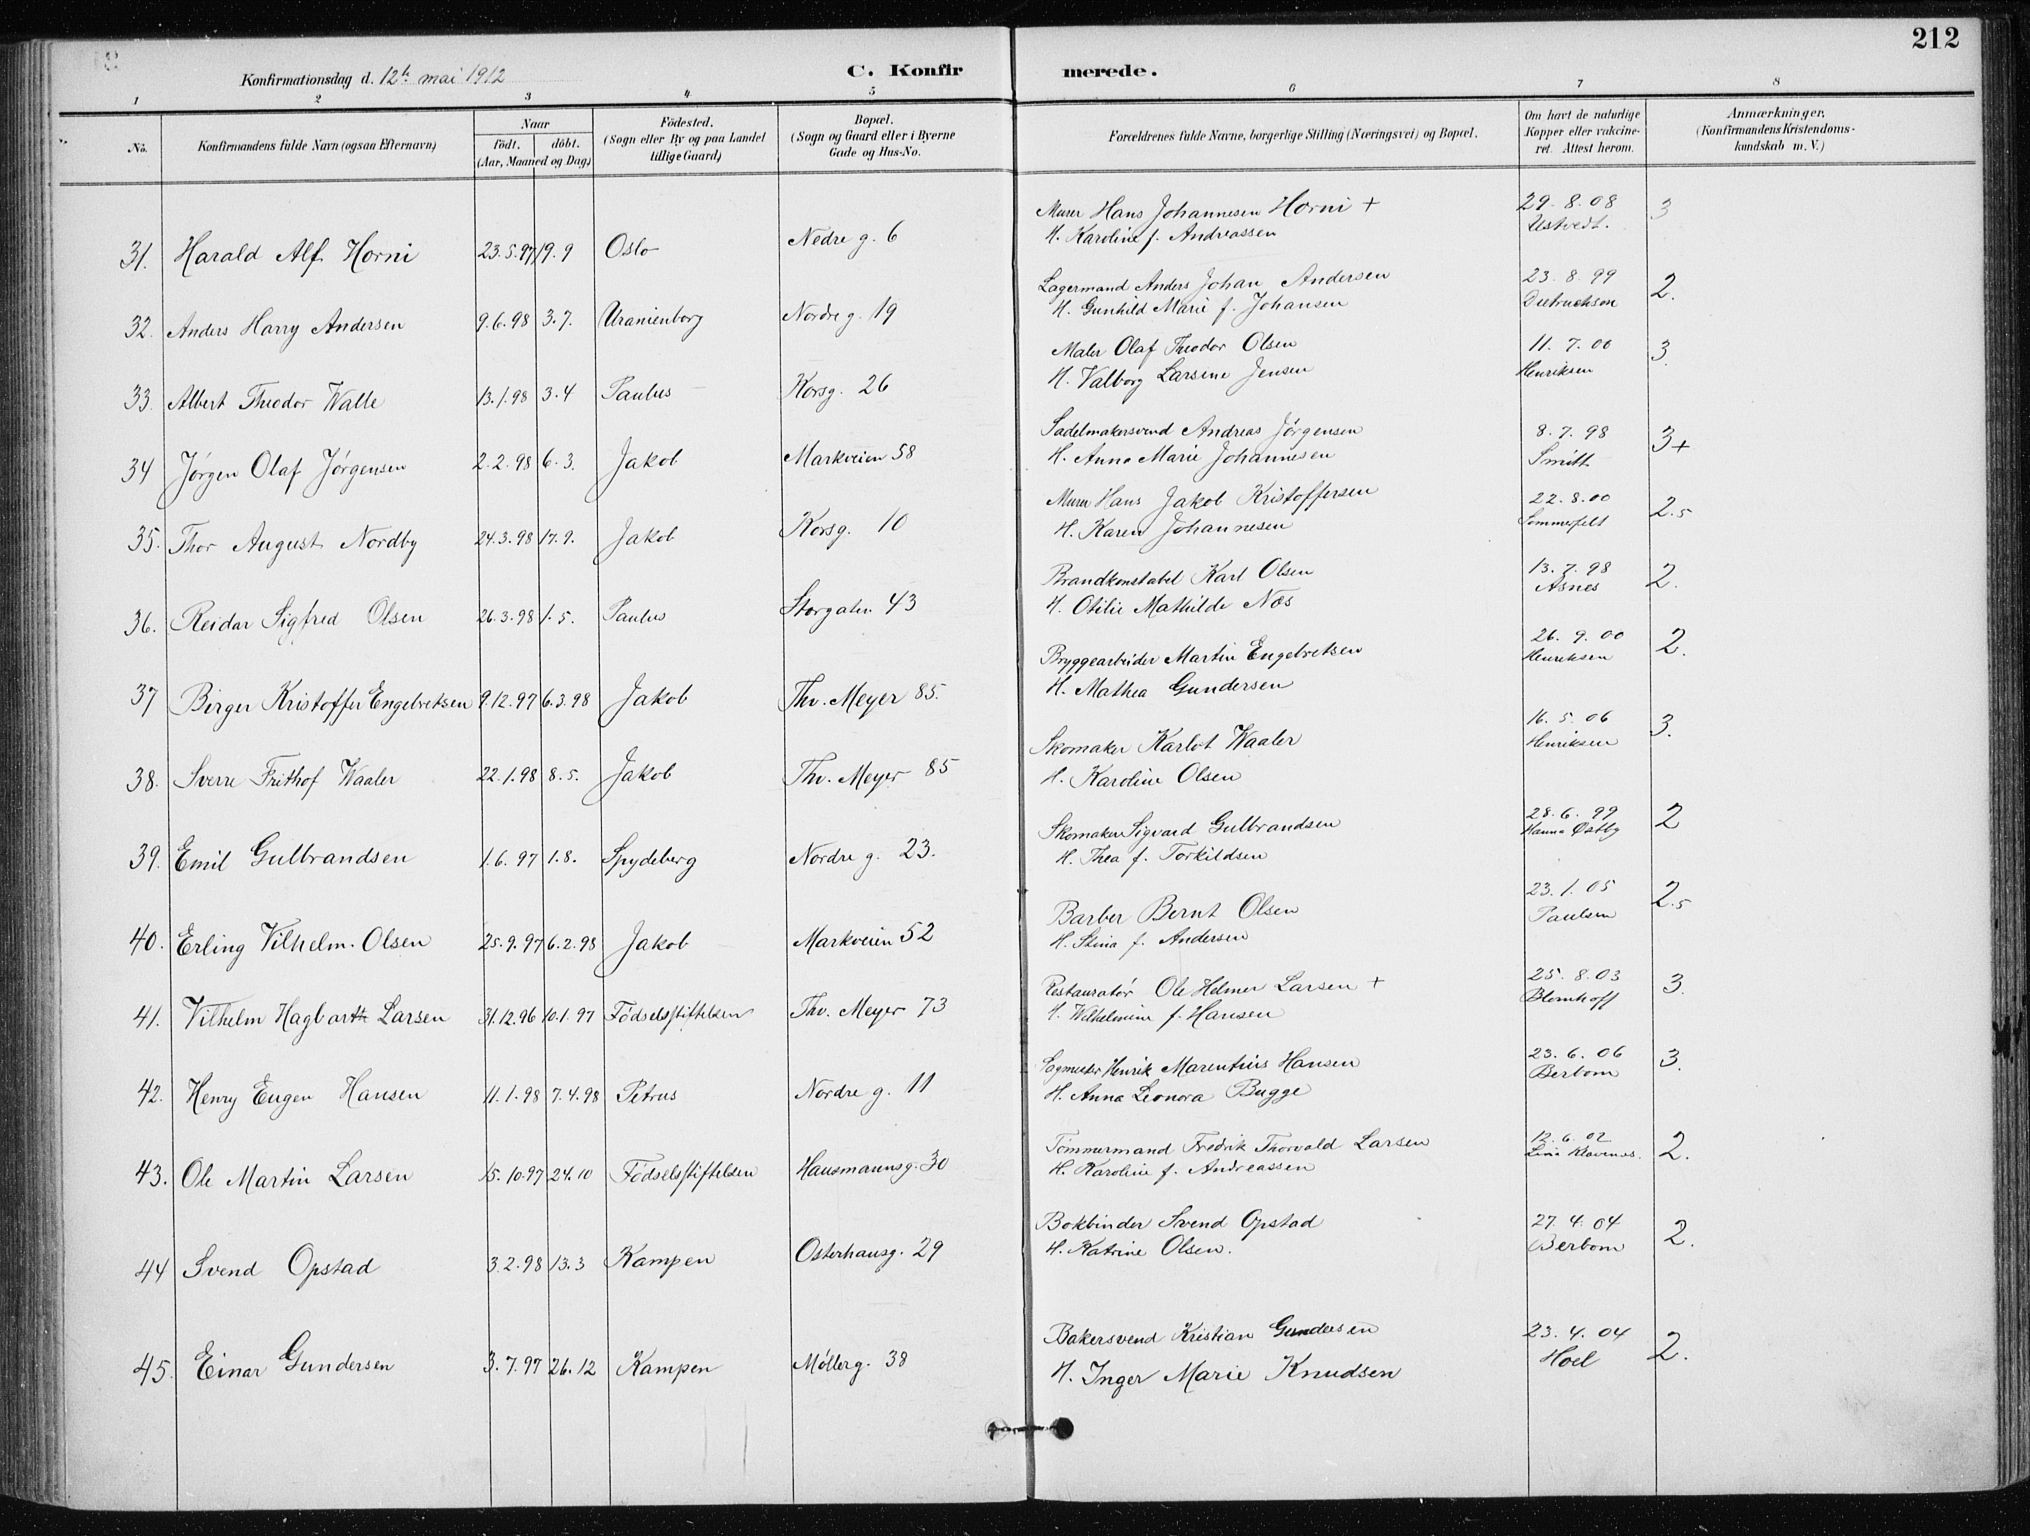 212
Konfirmationsdag d. 12te mai 1912
C. Konfirmerede.
1 2 3 4 5 6 7 8
No. Konfirmandens fulde Navn (ogsaa Efternavn) Naar født. døbt. (Aar, Maaned og Dag) Fødested. (Sogn eller By og paa Landet tillige Gaard) Bopæl. (Sogn og Gaard eller i Byerne Gade og Hus-No. Forældrenes fulde Navne, borgerlige Stilling (Næringsvei) og Bopæl. Om havt de naturlige Kopper eller vakcineret. Attest herom. Anmærkninger. (Konfirmandens Kristendomskundskab m. V.)
31. Harald Alf Horni 23.5.97 19.9 Oslo Nedre g. 6 Murer Hans Johannesen Horni + 29.8.08 3
H. Karoline f. Andreassen Ustvedt.
32. Anders Harry Andersen 9.6.98 3.7. Uranienborg Nordre g. 19 Lagermand Anders Johan Andersen 23.8.99 2.
H. Gunhild Marie f. Johansen Dietrichson
33. Albert Theodor Walle 13.1.98 3.4 Paulus Korsg. 26 Maler Olaf Theodor Olsen 11.7.00 3.
H. Valborg Larsine Jensen Henriksen
34 Jørgen Olaf Jørgensen 2.2.98 6.3. Jakob Markveien 58 Sadelmakersvend Andreas Jørgensen 8.7.98 3+
H. Anna Marie Johannesen Smitt
35. Thor August Nordby 24.3.98 17.9. Jakob Korsg. 10 Murer Hans Jakob Kristoffersen 22.8.00 2.5
H. Karen Johannesen Sommerfelt
36. Reidar Sigfred Olsen 26.3.98 1.5. Paulus Storgaten 43 Brandkonstabel Karl Olsen 13.7.98 2.
H. Otilie Mathilde Næs Asnes
37 Birger Kristoffer Engebretsen 9.12.97 6.3.98 Jakob Thv. Meyer 85. Bryggearbeider Martin Engebretsen 26.9.00 2.
H. Mathea Gundersen Henriksen
38. Sverre Frithof Waaler 22.1.98 8.5. Jakob Thv. Meyer 85 Skomaker Karlot Waaler 16.5.06 3.
H. Karoline Olsen Henriksen
39. Emil Gulbrandsen 1.6.97 1.8. Spydeberg Nordre g. 23. Skomaker Sigvard Gulbrandsen 28.6.99 2
H. Thea f. Torkildsen Hanna Østby
40. Erling Vilhelm Olsen 25.9.97 6.2.98 Jakob Markveien 52 Barber Bernt Olsen 23.1.05 2.5
H. Stina f. Andersen Paulsen
41. Vilhelm Hagbarth Larsen 31.12.96 10.1.97 Fødselsstiftelsen Thv. Meyer 73 Restauratør Ole Helmer Larsen + 25.8.03 3.
H. Wilhelmine f. Hansen Blomhoff
42. Henry Eugen Hansen 11.1.98 7.4.98 Petrus Nordre g. 11 Sagmester Henrik Marentius Hansen 23.6.06 3.
H. Anna Leonora Bugge Berbom
43. Ole Martin Larsen 15.10.97 24.10 Fødselsstiftelsen Hausmannsg. 30 Tømmermand Fredrik Thorvald Larsen 12.6.02 2.
H. Karoline f. Andreassen Lina Klavenes.
44 Svend Opstad 3.2.98 13.3 Kampen Osterhausg. 29 Bokbinder Svend Opstad 27.4.04 2.
H. Katrine Olsen. Berbom
45. Einar Gundersen 3.7.97 26.12 Kampen Møllerg. 38 Bakersvend Kristian Gundersen 23.4.04 2.
H. Inger Marie Knudsen Hoel